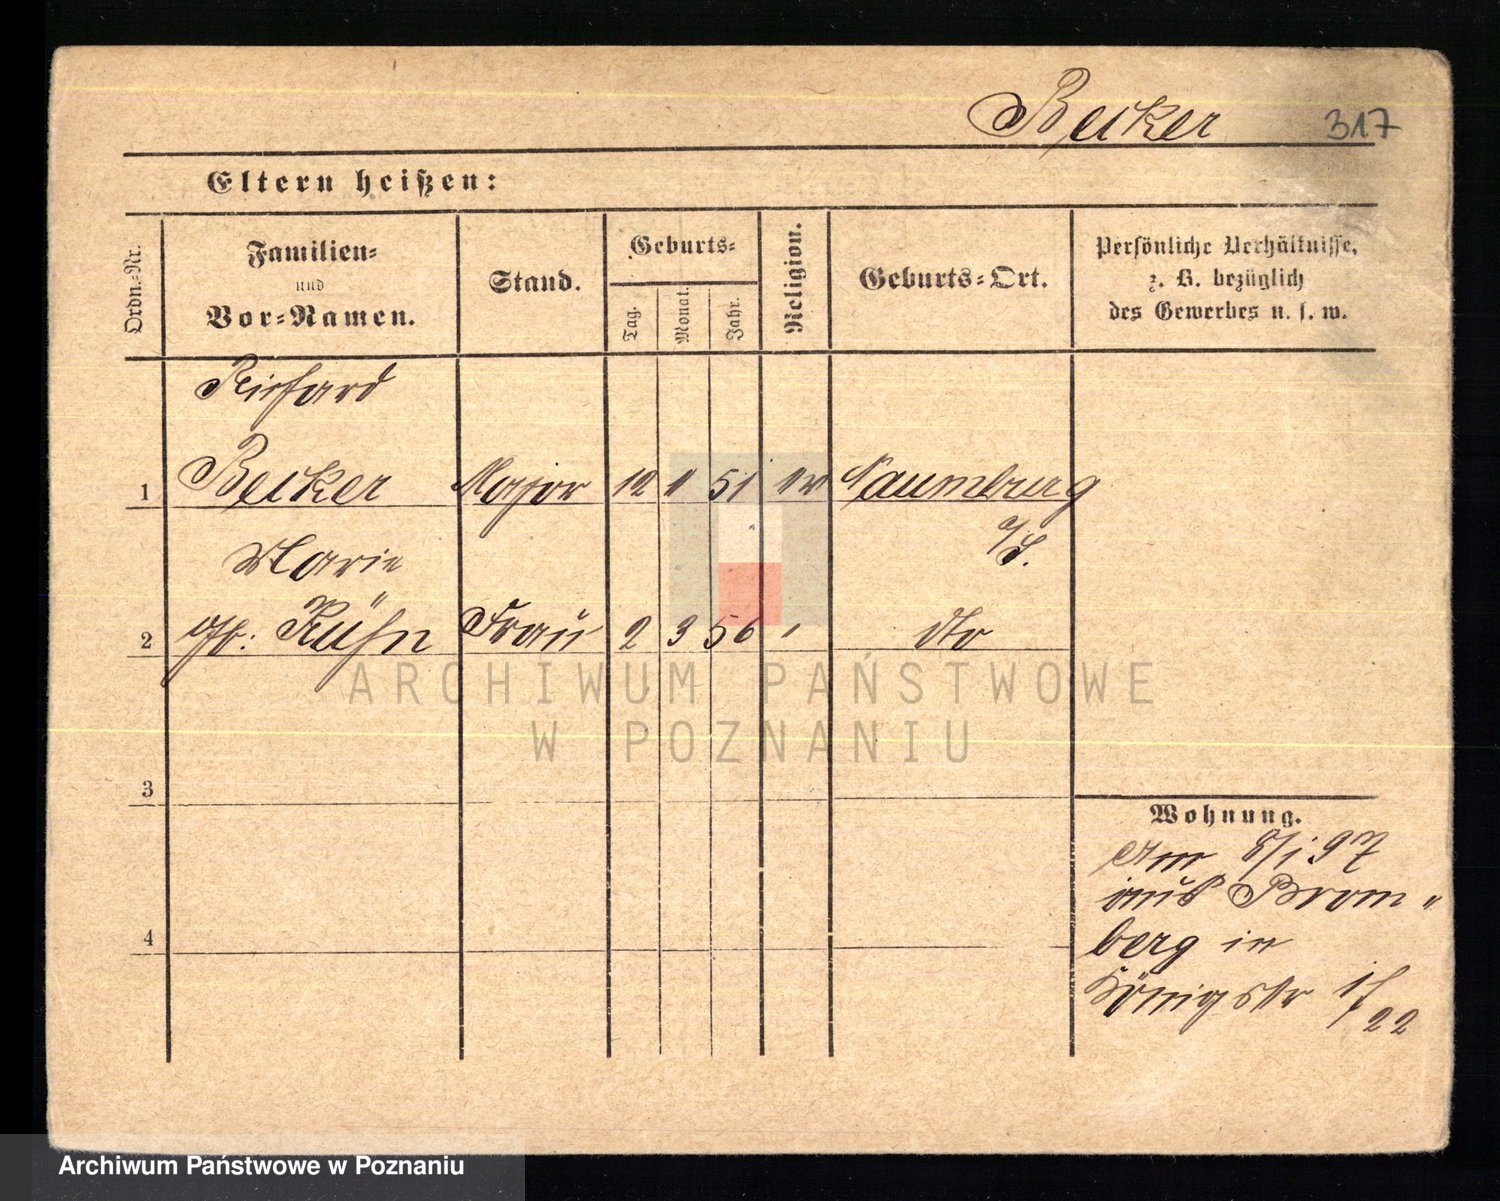 Becker 317
Eltern heißen:
Ordn.-Nr.
Familien-
und
Vor-Namen.
Stand.
Geburts-
Tag.
Monat.
Jahr.
Religion.
Geburts-Ort.
Persönliche Verhältnisse,
z. B. bezüglich
des Gewerbes u. s. w.
Richard
1 Becker Major 12 1 51 ev Naumburg
a/S.
Marie
2 gb: Kühn Frau 2 3 56 " dto
3
4
Wohnung.
Am 8/1 97
aus Brom"
berg in
Königstr
22
ARCHIWUM PAŃSTWOWE
W POZNANIU
Archiwum Państwowe w Poznaniu